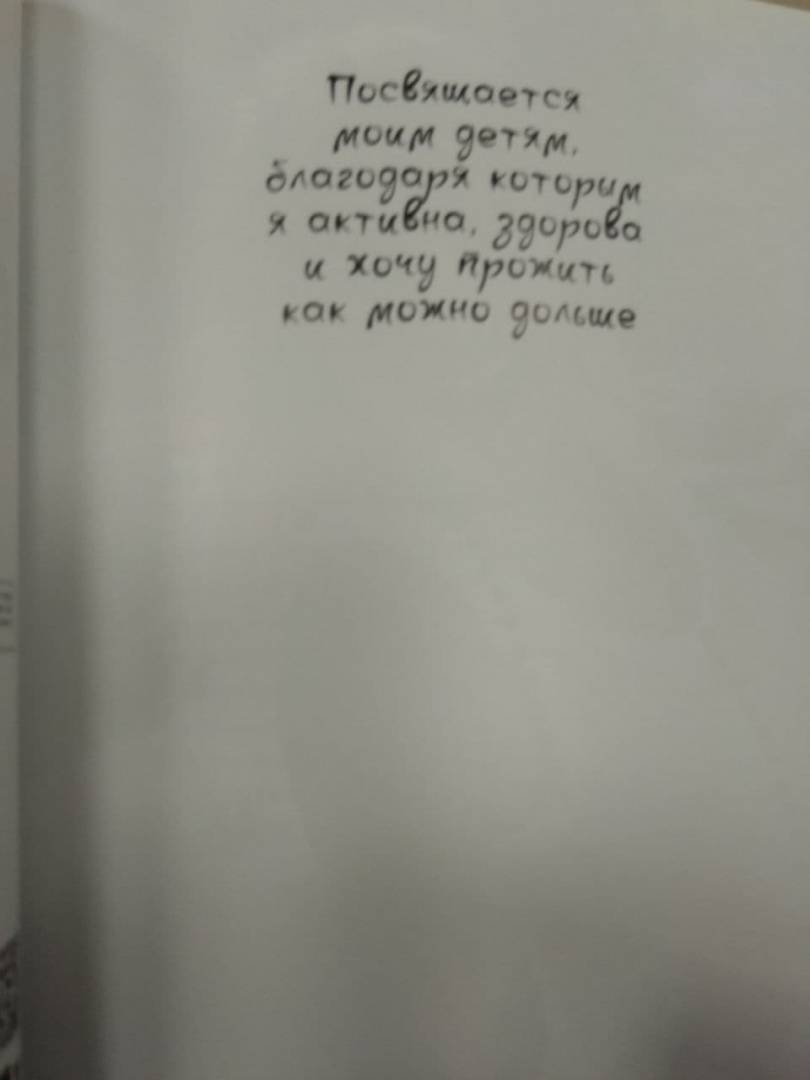 Посвящается
моим детям,
благодаря которим
я активна, здорова
и хочу прожить
как можно дольше